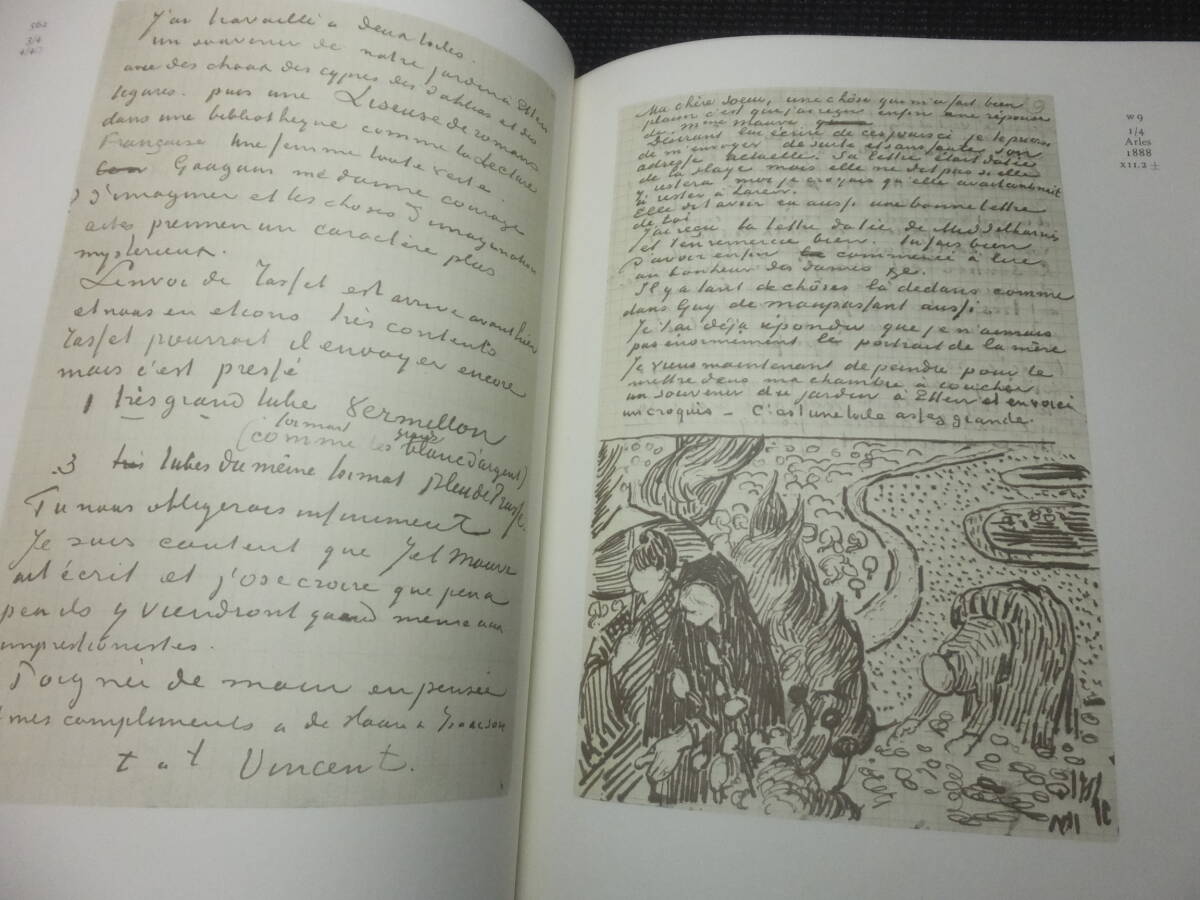 562
3/4
J'ai travaillé à deux toiles.
un souvenir de notre jardin à Etten
avec des choux des cyprès des dahlias et des
figures. puis une Liseuse de romans
dans une bibliothèque comme la Lecture
Française Une femme toute verte
Gauguin me donne courage
d'imaginer et les choses d'imagination
certes prennent un caractère plus
mystérieux.
L'envoi de Tasset est arrivé avant hier
et nous en etions très contents
Tasset pourrait il envoyer encore
mais c'est pressé
1 très grand tube vermillon
format gros
(comme les blanc d'argent)
3 tubes du même format bleu de Prusse.
Tu nous obligerais infiniment
Je suis content que Jet Mauve
ait écrit et j'ose croire que peu à
peu ils y viendront quand même aux
impressionistes.
Poignée de main en pensée
mes compliments à de Haan & Isaacson
t à t Vincent.
9
Ma chère soeur, une chôse qui m'a fait bien
plaisir c'est que j'ai reçu enfin une réponse
de Mme Mauve
Désirant lui écrire de ces jours ci je te prierais
de m'envoyer de suite et sans faute son
adresse actuelle. Sa lettre était datée
de la Haye mais elle ne dit pas si elle
y restera moi je croyais qu'elle
à rester à Laren.
Elle dit avoir eu aussi une bonne lettre
de toi
J'ai reçu ta lettre datée de Middelharnis
et t'en remercie bien. tu fais bien
d'avoir enfin commencé à lire
au bonheur des dames &c.
Il y a tant de chôses là dedans comme
dans Guy de Maupassant aussi.
Je t'ai déjà répondu que je n'aimais
pas enormement le portrait de la mère
Je viens maintenant de peindre pour le
mettre dans ma chambre à coucher
un souvenir du jardin à Etten et en voici
un croquis – C'est une toile assez grande.
W9
1/4
Arles
1888
XII.2 ±